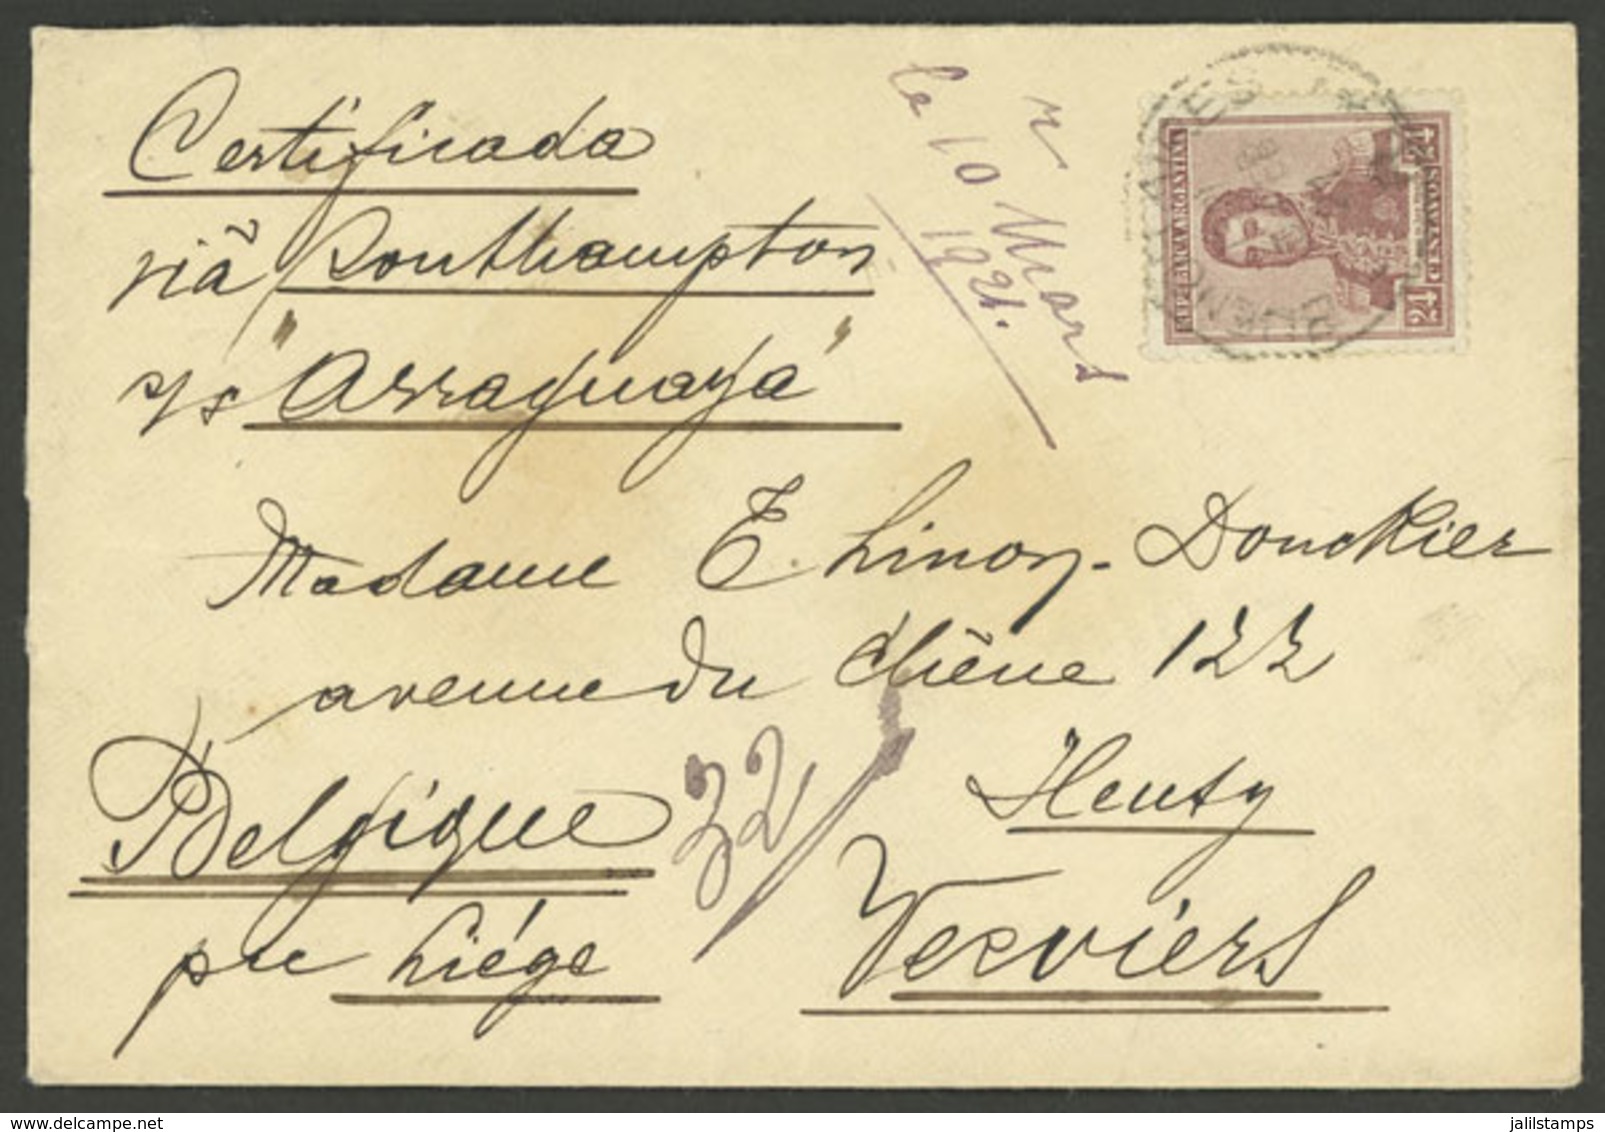 Certificada
viã Southampton
s/s "Arraguaya"
le 10 Mars
1921.
REPUBLICA ARGENTINA
24
24
CENTAVOS
BUENOS AIRES
Madame E. Linon-Donckier
avenue du Chêne 122
Heusy
Belgique
32/
pre Liége
Verviers
delcampe.net
jalilstamps